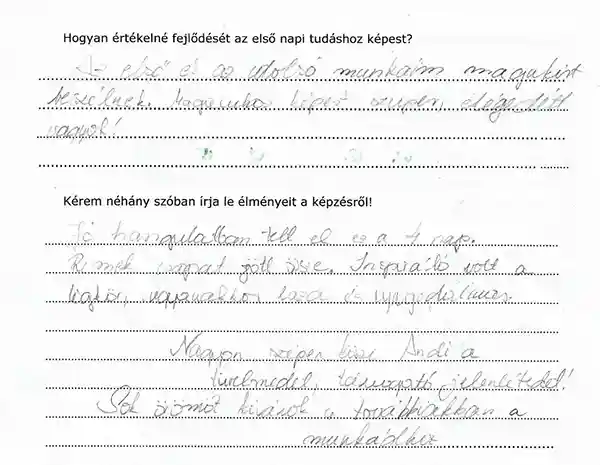 Hogyan értékelné fejlődését az első napi tudáshoz képest?
Az első és az utolsó munkáim magukért
beszélnek. Magamhoz képest szuper, elégedett
vagyok!
Kérem néhány szóban írja le élményeit a képzésről!
Jó hangulatban telt el ez a 4 nap.
Remek csapat jött össze. Inspiráló volt a
légkör, ugyanakkor laza és nyugodalmas.
Nagyon szépen kösz Andi a
türelmedet, támogató jelenlétedet!
Sok örömöt kívánok a továbbiakban a
munkádhoz